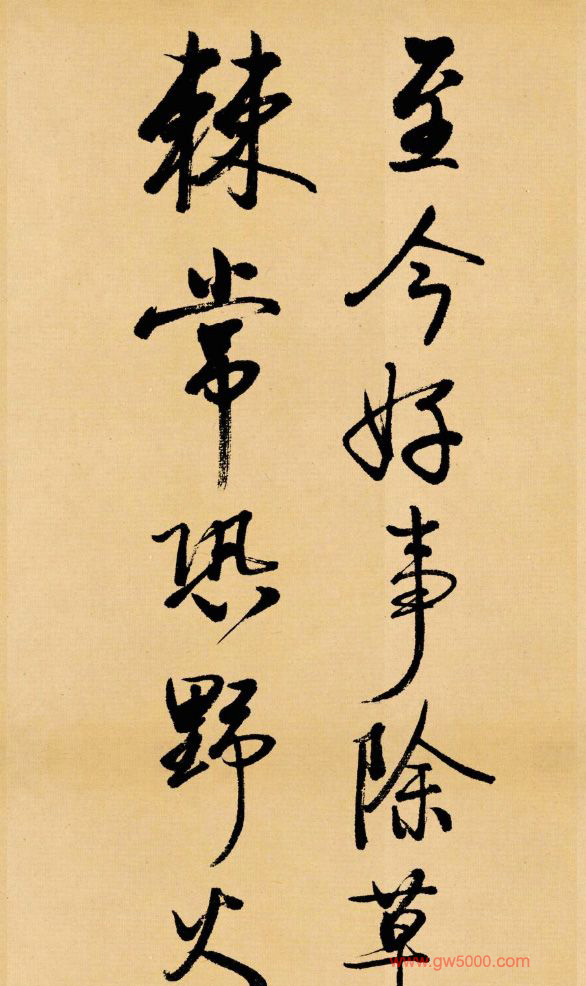 至今好事除草
棘常恐野火
www.gw5000.com